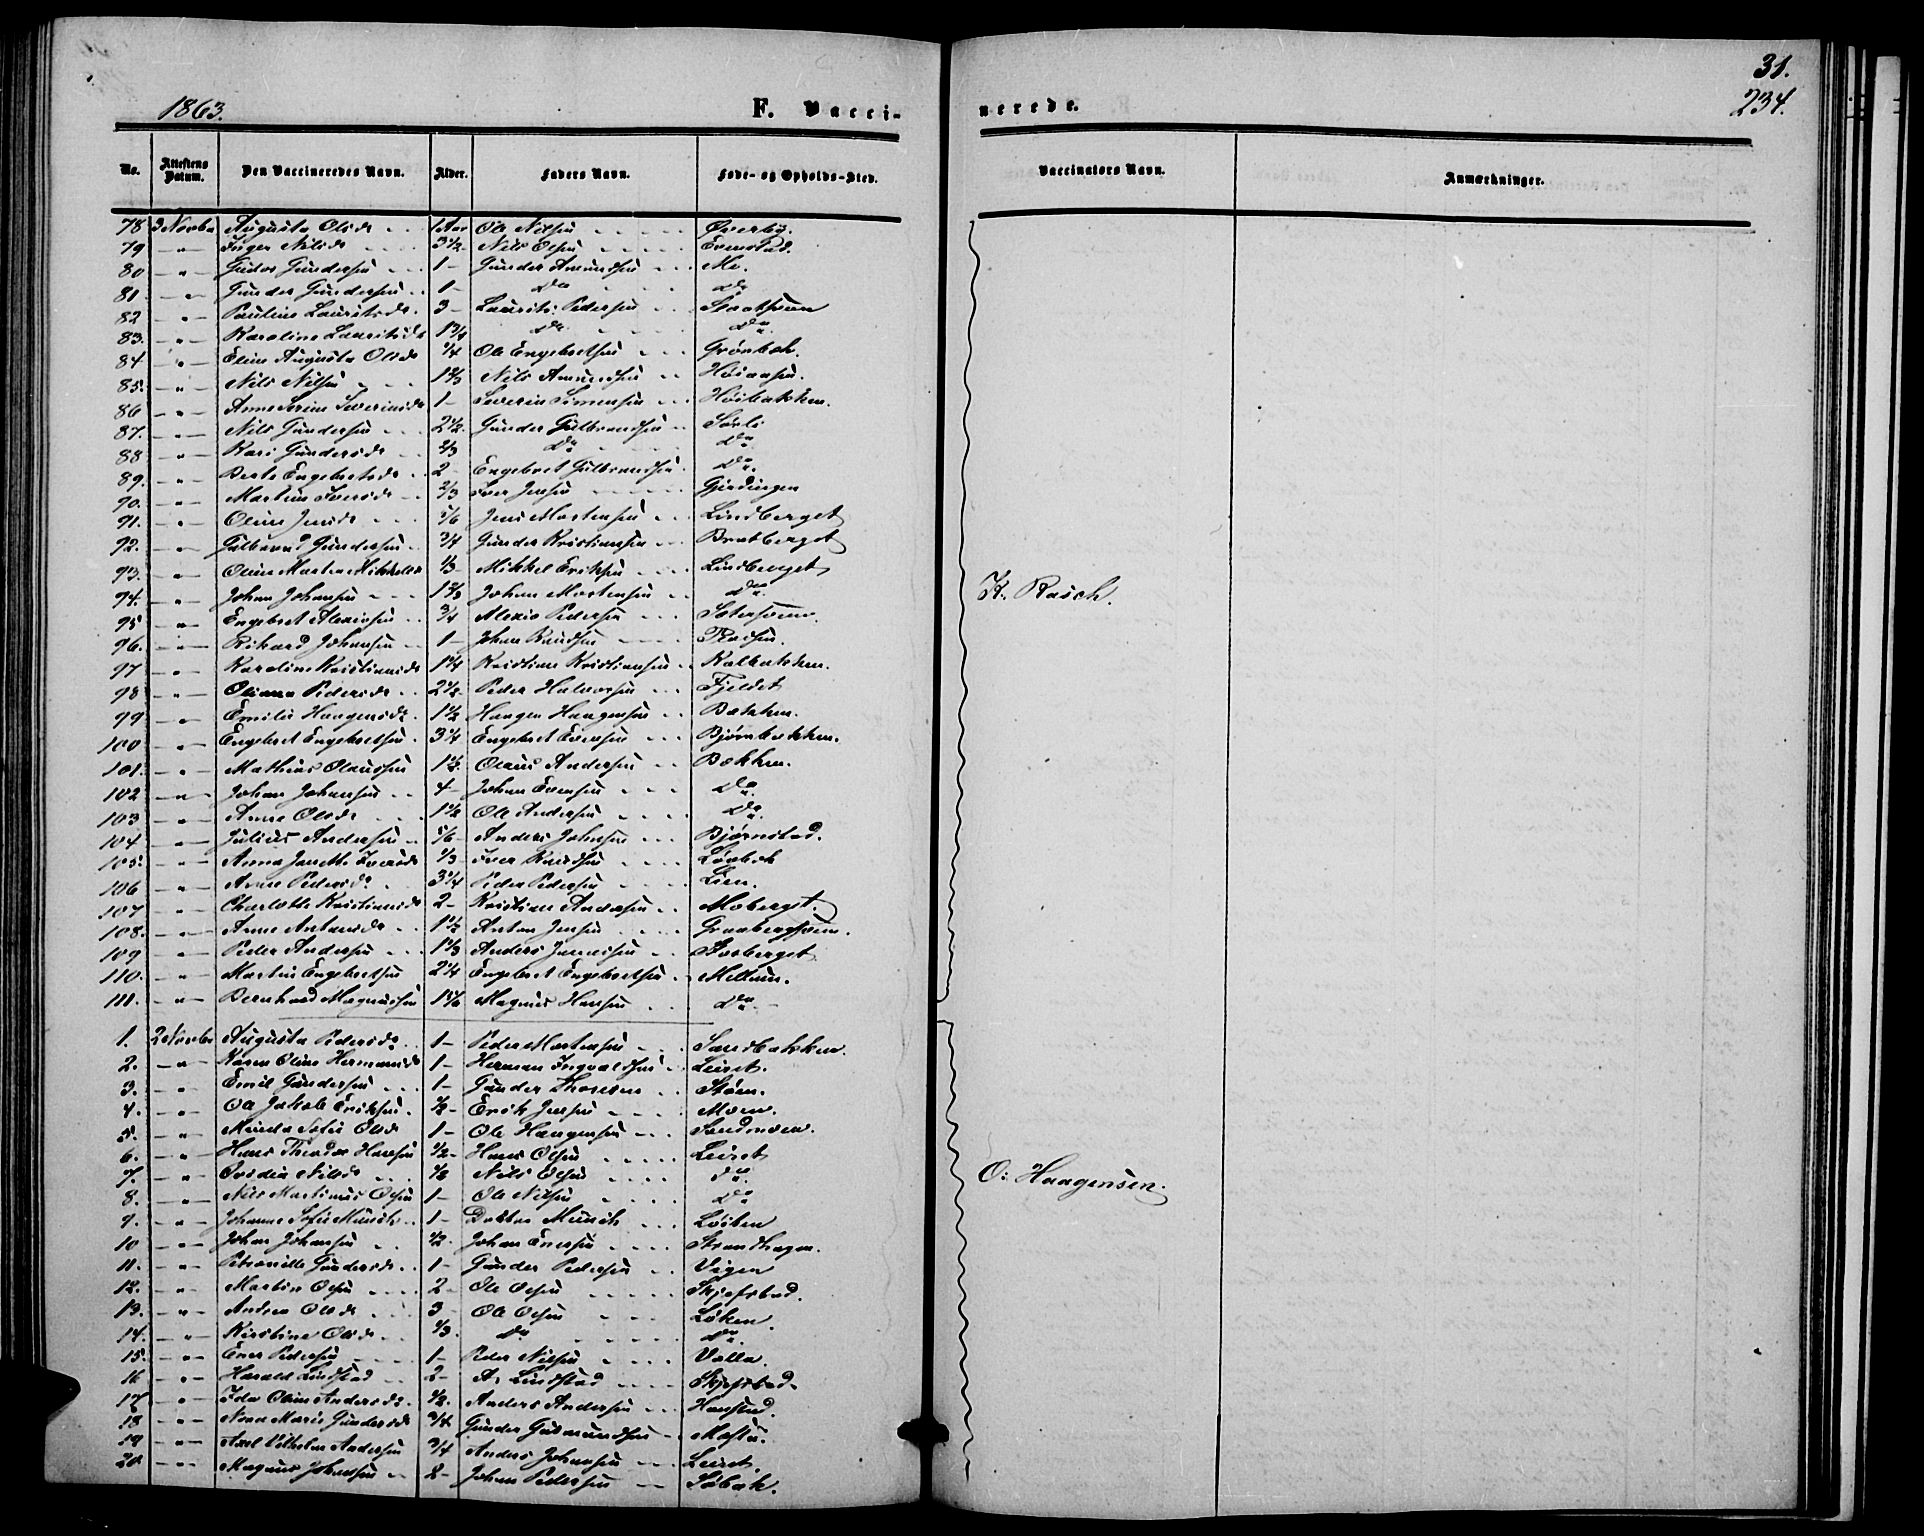 31.
1863. F. Vacci- nerede. 234.
No. Attestens Datum. Den Vaccineredes Navn. Alder. Faders Navn. Føde- og Opholds-Sted. Vaccinators Navn. Anmærkninger.
78 3 Novbr Augusta Olsdr 1 Aar Ole Nilsen Øverby.
79 " Inger Nilsdr 3½ Nils Olsen Evenstad.
80 " Gunder Amundsen Mo.
81 " Gunder Gundersen 1 Do do
82 " Pauline Lauritsdr 3 Laurits Pedersen
83. " Karoline Lauritsdr 1¾ Do Do
84 " Eline Augusta Olsdr ¼ Ole Engebretsen Grønbek.
85. " Nils Nilsen 1⅔ Nils Amundsen
86 " Anne Severinsdr 1 Severin Simensen Høibakken.
87. " Nils Gundersen 2½ Gunder Gulbrandsen Sørli
88 " Kari Gundersdr ⅔ Do Do
89. " Berte Engebretsdr 2 Engebret Gulbrandsen Do
90. " Martin Iversdr ⅔ Iver Jensen Gjerdingen
91. " Oline Jensdr 5/6 Jens Mortensen Lindberget
92. " Gulbrand Gundersen ¾ Gunder Kristiansen Bratberget
93. " Oline Martea Mikkelsdr ⅓ Mikkel Eriksen Lindberget
94. " Johan Johansen 1⅔ Johan Mortensen Do
95 " Engebret Alexiusen ¾ Alexius Pedersen
K. Rasch.
96. " Rikard Johansen 1 Johan Knudsen
97 " Karoline Kristiansdr 1¾ Kristian Kristiansen Kalbakken.
98 " Oliana Pedersdr 2½ Peder Halvorsen Fjeldet
99 " Emilie Haagensdr 1½ Haagen Haagensen Bakken.
100 " Engebret Engebretsen 3¼ Engebret Iversen Bjørnbakken.
101. " Mathias Olaussen 1½ Olaus Andersen Bakken.
102 " Johan Johansen 4 Johan Evensen Do
103 " Anne Olsdr 1½ Ole Andersen Do
104 " Julius Andersen 5/6 Anders Johnsen Bjørnstad.
105. " Anna Janethe Iversdr ⅓ Iver Knudsen Løvbek
106 " Anne Pedersdr 3¼ Peder Pedersen Lien.
107 " Charlotte Kristiansdr 2 Kristian Andersen Moberget.
108. " Anne Antonsdr 1½ Anton Jensen
109 " Peder Andersen 1⅓ Anders Jensen
110. " Martin Engebretsen 2¼ Engebret Engebretsen Mellum.
111. " Bernhard Magnussen 1 5/6 Magnus Hansen Do
1. 2 Novbr Augusta Pedersdr 1 Peder Mortensen Sandbakken.
2. " Karen Oline Hermansdr 1 Herman Ingvaldsen Leiret.
3. " Emil Gundersen 1 Gunder Thoresen Støen.
4. " Ole Jakob Eriksen ½ Erik Jensen Moen.
5. " Minda Sofie Olsdr 1 Ole Haagensen Sandmoen.
6. " Hans Theodor Hansen ½ Hans Olsen Leiret
7. " Nilsdr ½ Nils Olsen do
8. " Nils Martinus Olsen 1 Ole Nilsen Do
O. Haagensen.
9. " Johanne Sofie Münch 1 Doktor Münch Løiten
10 " Johan Johansen ½ Johan Enersen Strandhagen.
11. " Petronelle Gundersdr 1 Gunder Pedersen Vigen
12. " Martin Olsen 2 Ole Olsen Skjefstad.
13. " Andrea Olsdr 3 Ole Olsen Løken.
14. " Kirstine Olsdr ⅓ Do Do
15. " Ener Pedersen 1 Peder Nilsen Valla.
16 " Harald Lindstad 2 A. Lindstad Skjefstad.
17 " Ida Oline Andersdr ½ Anders Andersen Hanstad.
18 " Nora Marie Gundersdr ¾ Gunder Gudmundsen Mostu.
19 " Axel Vilhelm Andersen ¾ Anders Johansen Leiret.
20 " Magnus Johansen 2 Johan Pedersen Søbak.